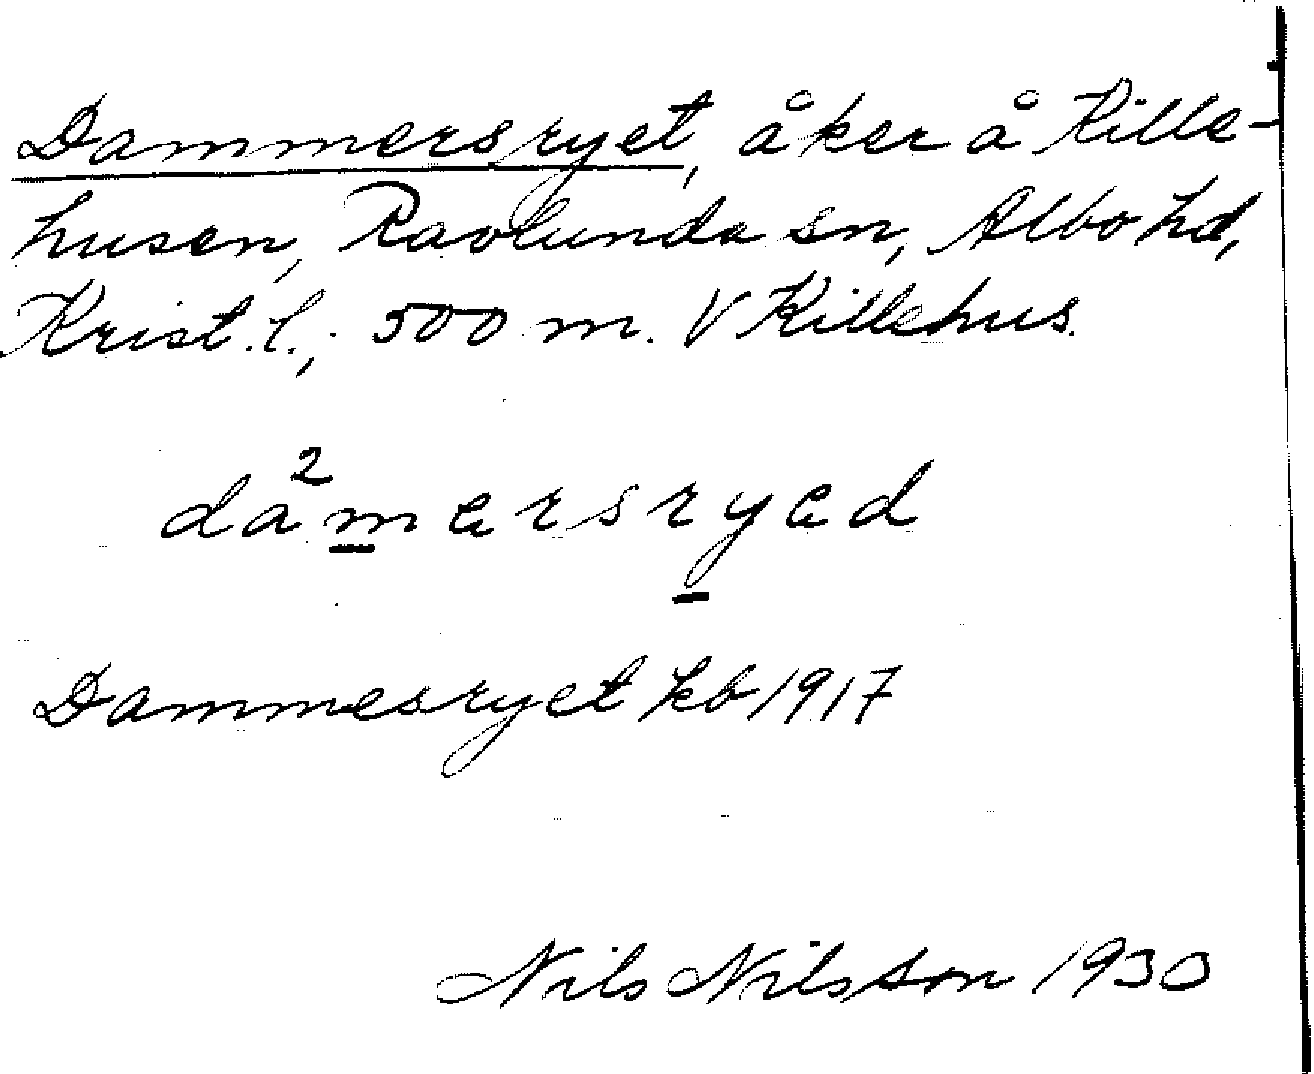 Dammersryet, åker å Kille-
husen, Ravlunda sn, Albo hd,
Krist. l.; 500 m. V Killehus.
da²mersryed
Dammesryet kb 1917
Nils Nilsson 1930